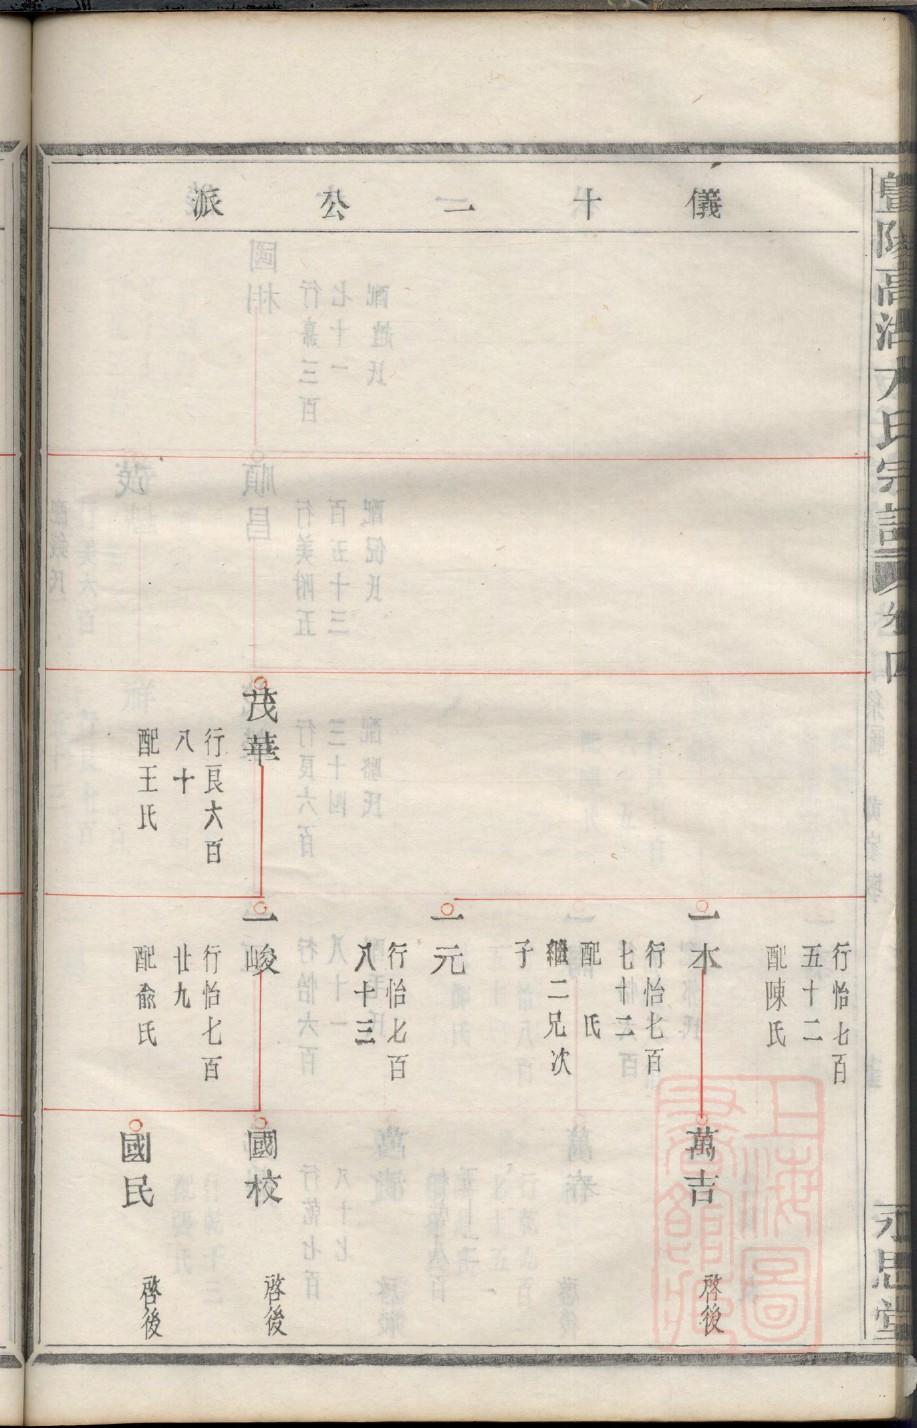 暨陽高湖方氏宗譜
卷四
永思堂
儀十二公派
行怡七百
五十二
配陳氏
一木
行怡七百
七十二
配 氏
繼二兄次
子
萬吉
啓後
一元
行怡七百
八十三
茂華
行艮六百
八十
配王氏
一峻
行怡七百
廿九
配俞氏
國校
啓後
國民
啓後
上海圖書館藏